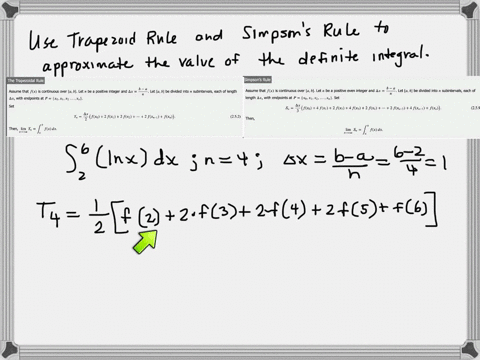 Use Trapezoid Rule and Simpson's Rule to
approximate the value of the definite integral.
The Trapezoidal Rule
Assume that f(x) is continuous over [a, b]. Let n be a positive integer and Δx = (b−a)/n. Let [a, b] be divided into n subintervals, each of length
Δx, with endpoints at P = {x₀, x₁, x₂, …, xₙ}.
Set
Tₙ = Δx/2 (f(x₀) + 2 f(x₁) + 2 f(x₂) + ⋯ + 2 f(xₙ₋₁) + f(xₙ)).
Then,
Simpson's Rule
Assume that f(x) is continuous over [a, b]. Let n be a positive even integer and Δx = (b−a)/n. Let [a, b] be divided into n subintervals, each of length
Δx, with endpoints at P = {x₀, x₁, x₂, …, xₙ}. Set
Then,
∫₂⁶ (lnx) dx ; n=4 ; Δx = (b−a)/n = (6−2)/4 = 1
T₄ = 1/2 [f(2) + 2·f(3) + 2·f(4) + 2f(5) + f(6)]